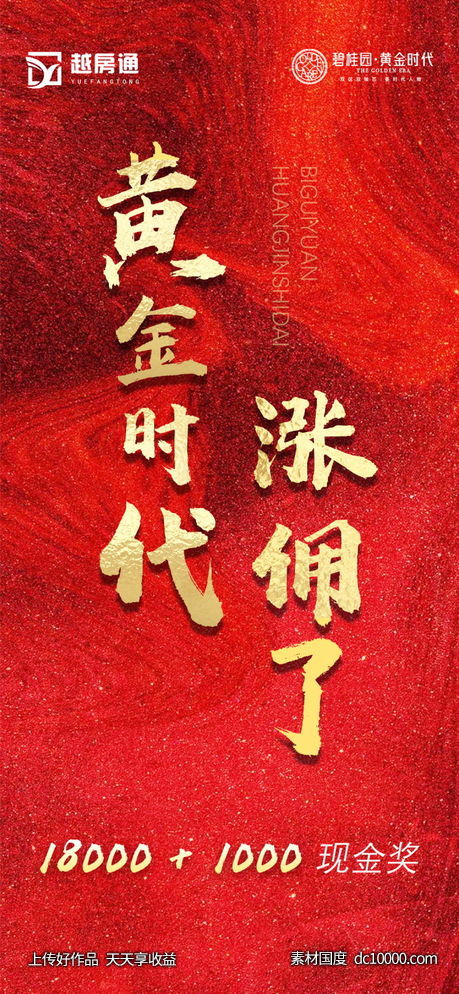 越房通
YUEFANGTONG
碧桂园·黄金时代
THE GOLDEN ERA
BIGUIYUAN
HUANGJINSHIDAI
黄金时代
涨佣了
18000 + 1000 现金奖
上传好作品 天天享收益
素材国度 dc10000.com